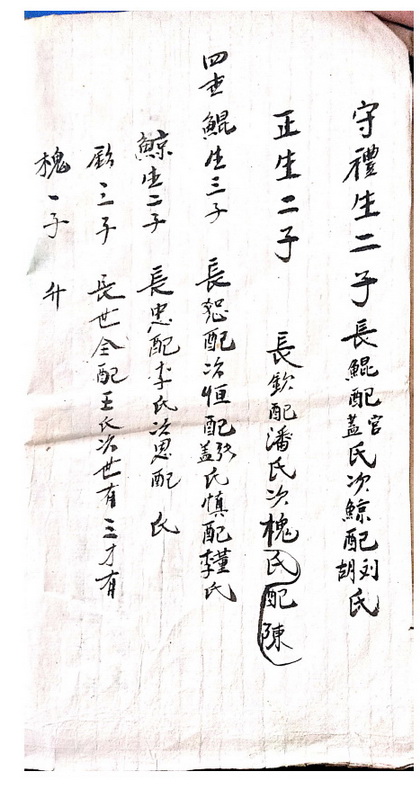 守禮生二子 長鯤配官蓋氏次鯨配刘胡氏
正生二子 長欽配潘氏次槐氏配陳
四世鯤生三子 長恕配次恒配張蓋氏慎配董李氏
鯨生二子 長忠配李氏次思配 氏
欽三子 長世全配王氏次世有三才有
槐一子 升